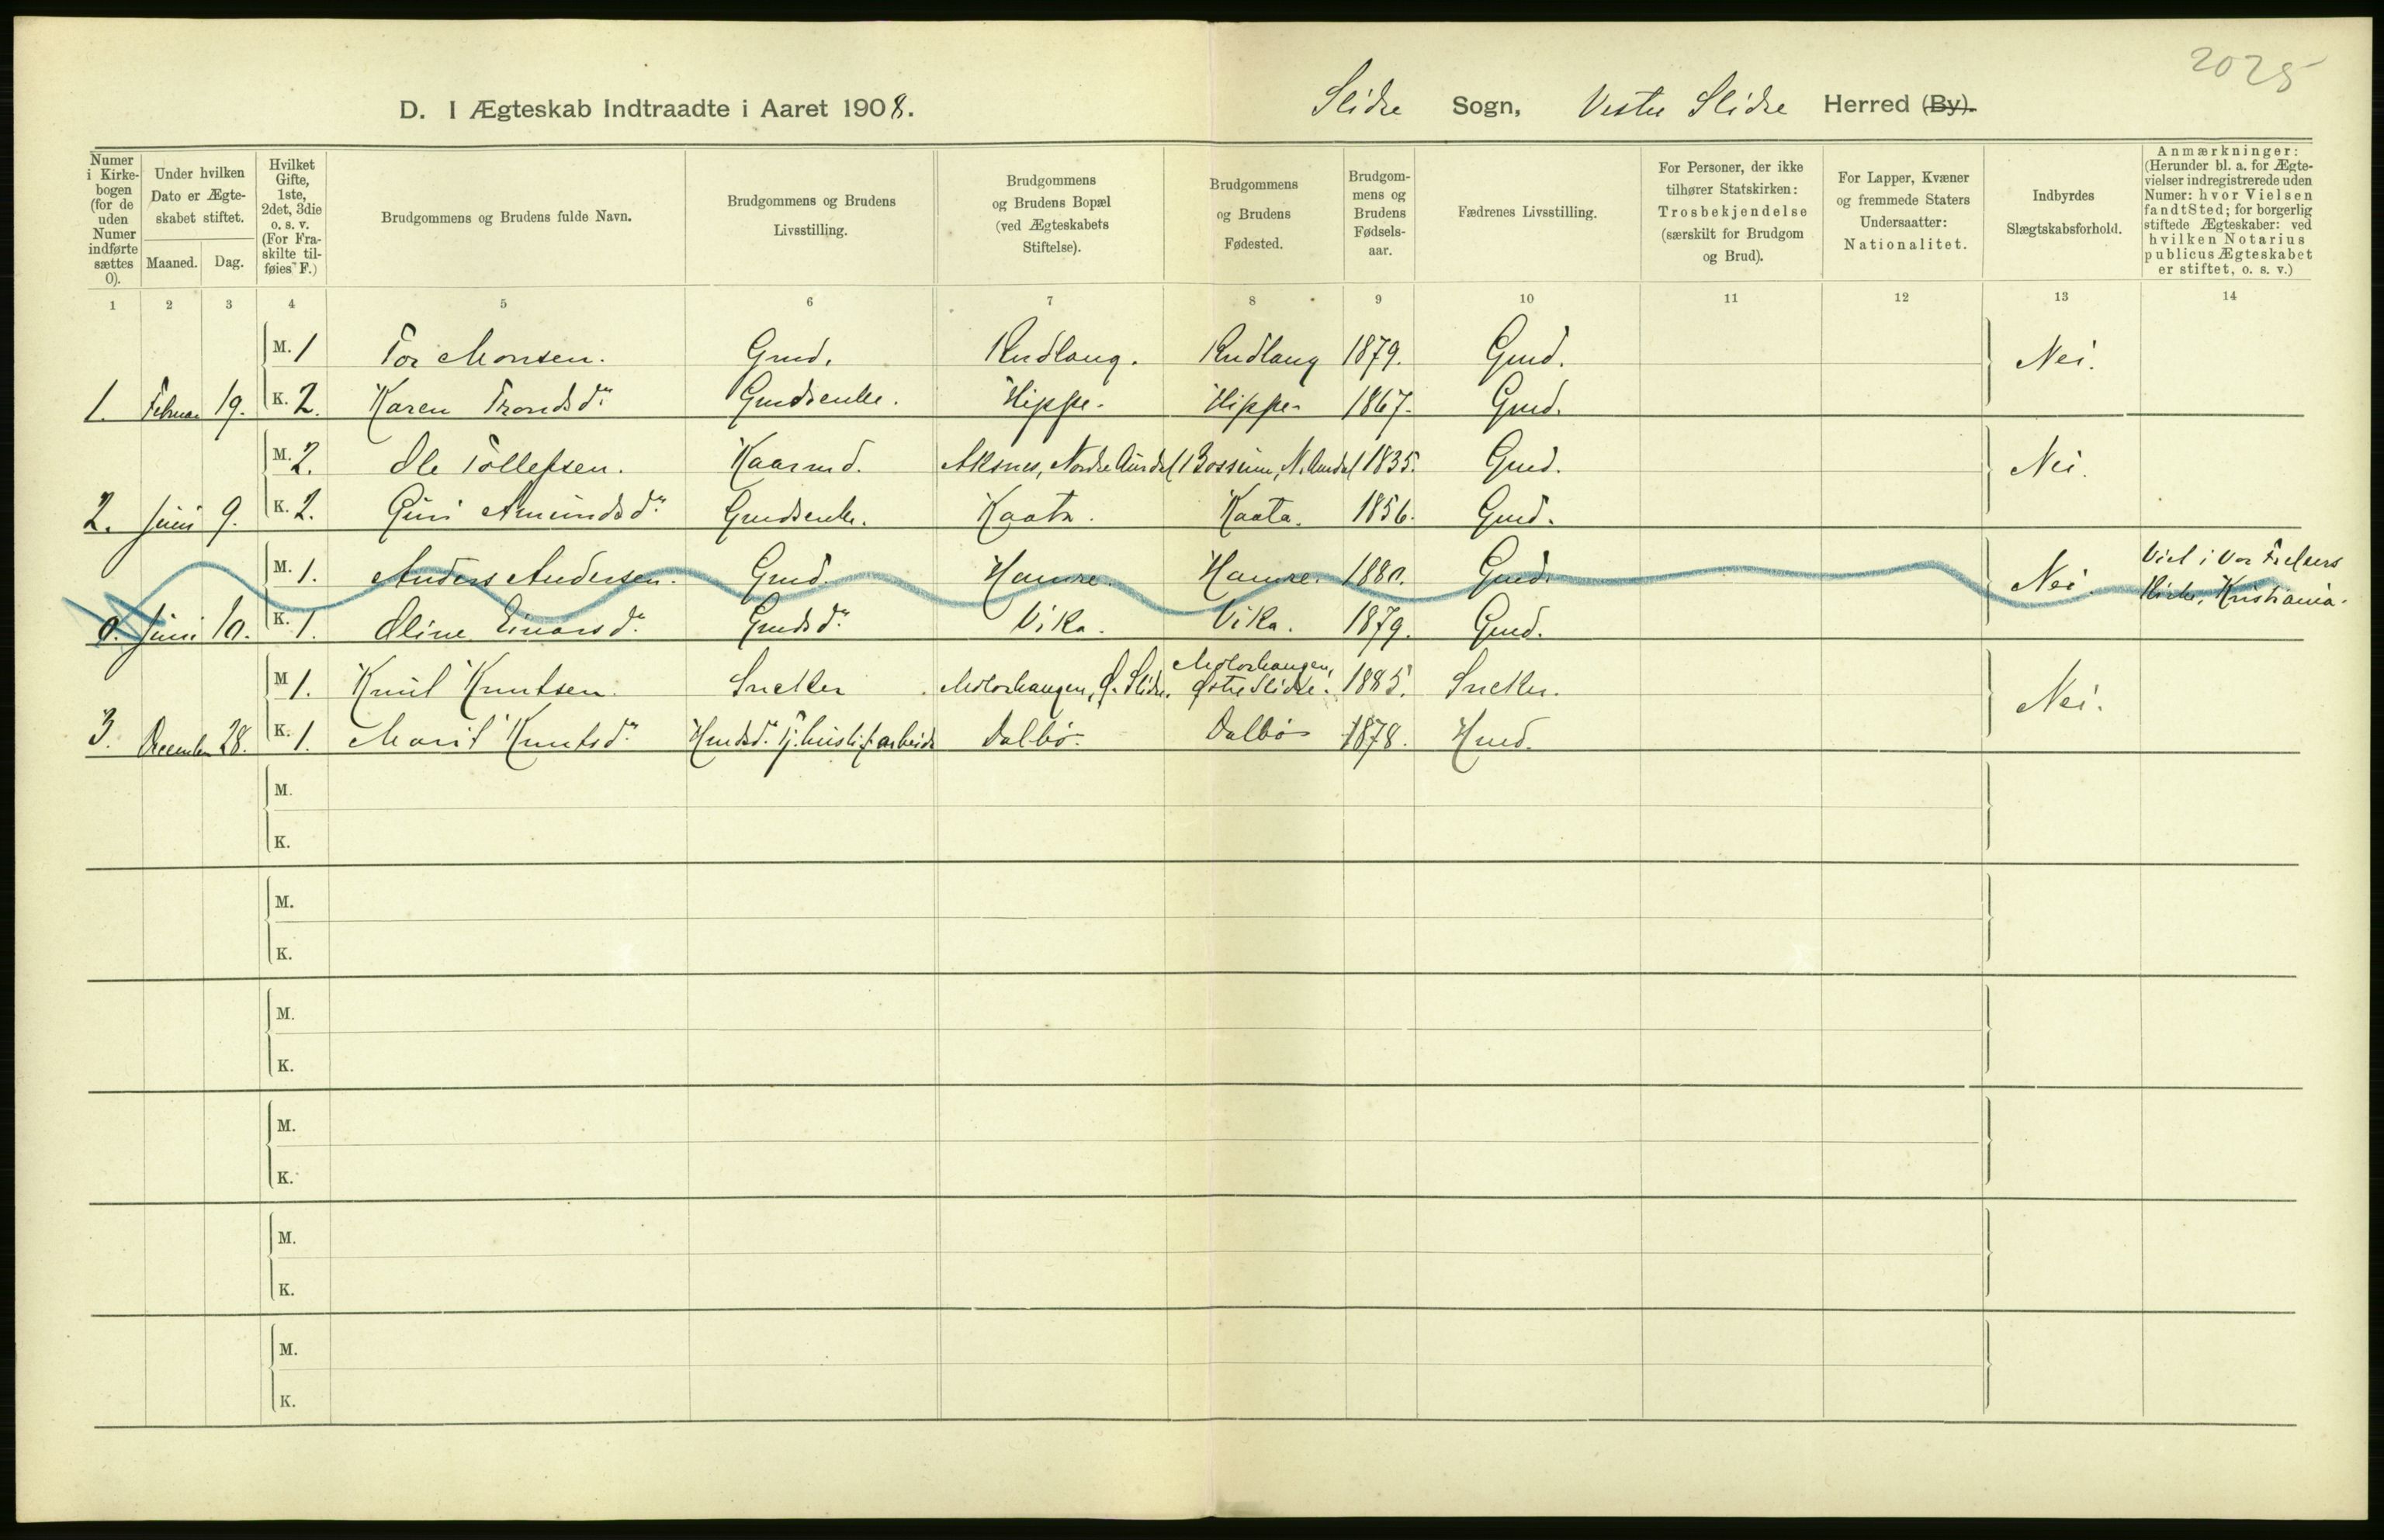 2025
D. I Ægteskab Indtraadte i Aaret 1908. Slidre Sogn, Vestre Slidre Herred (By).
Numer i Kirkebogen (for de uden Numer indførte sættes 0).
Under hvilken Dato er Ægteskabet stiftet.
Maaned. Dag.
Hvilket Gifte, 1ste, 2det, 3die o. s. v. (For Fraskilte tilføies F.)
Brudgommens og Brudens fulde Navn.
Brudgommens og Brudens Livsstilling.
Brudgommens og Brudens Bopæl (ved Ægteskabets Stiftelse).
Brudgommens og Brudens Fødested.
Brudgommens og Brudens Fødselsaar.
Fædrenes Livsstilling.
For Personer, der ikke tilhører Statskirken: Trosbekjendelse (særskilt for Brudgom og Brud).
For Lapper, Kvæner og fremmede Staters Undersaatter: Nationalitet.
Indbyrdes Slægtskabsforhold.
Anmærkninger: (Herunder bl. a. for Ægtevielser indregistrerede uden Numer: hvor Vielsen fandt Sted; for borgerlig stiftede Ægteskaber: ved hvilken Notarius publicus Ægteskabet er stiftet, o. s. v.)
1 2 3 4 5 6 7 8 9 10 11 12 13 14
M. 1 Tor Monsen. Grd. Rudlang. Rudlang 1879. Grd. Nei.
1. Februar 19. K. 2. Karen Tronds dr. Grdsenke. Hippe. Hippe. 1867. Grd.
M. 2. Ole Tollefsen. Kaarmd. Aksnes, Nordre Aurdal Bossum, N. Aurdal 1835. Grd. Nei.
2. Juni 9. K. 2. Guri Amunds dr. Grdsenke. Kaata. Kaata. 1856. Grd.
M. 1. Anders Andersen. Grd. Hamre. Hamre. 1880. Grd. Nei. Viet i Vor Frelsers
0. Juni 10. K. 1. Oline Einars dr. Grds dr. Vika. Vika. 1879. Grd. Kirke, Kristiania.
M 1. Knut Knutsen. Snekker Molorhaugen, Ø. Slidre. Molorhaugen, Østre Slidre. 1885. Snekker. Nei.
3. December 28. K. 1. Marit Knuts dr. Hmds dr. Tj. husligt arbeide Dalbø. Dalbø 1878. Hmd.
M.
K.
M.
K.
M.
K.
M.
K.
M.
K.
M.
K.